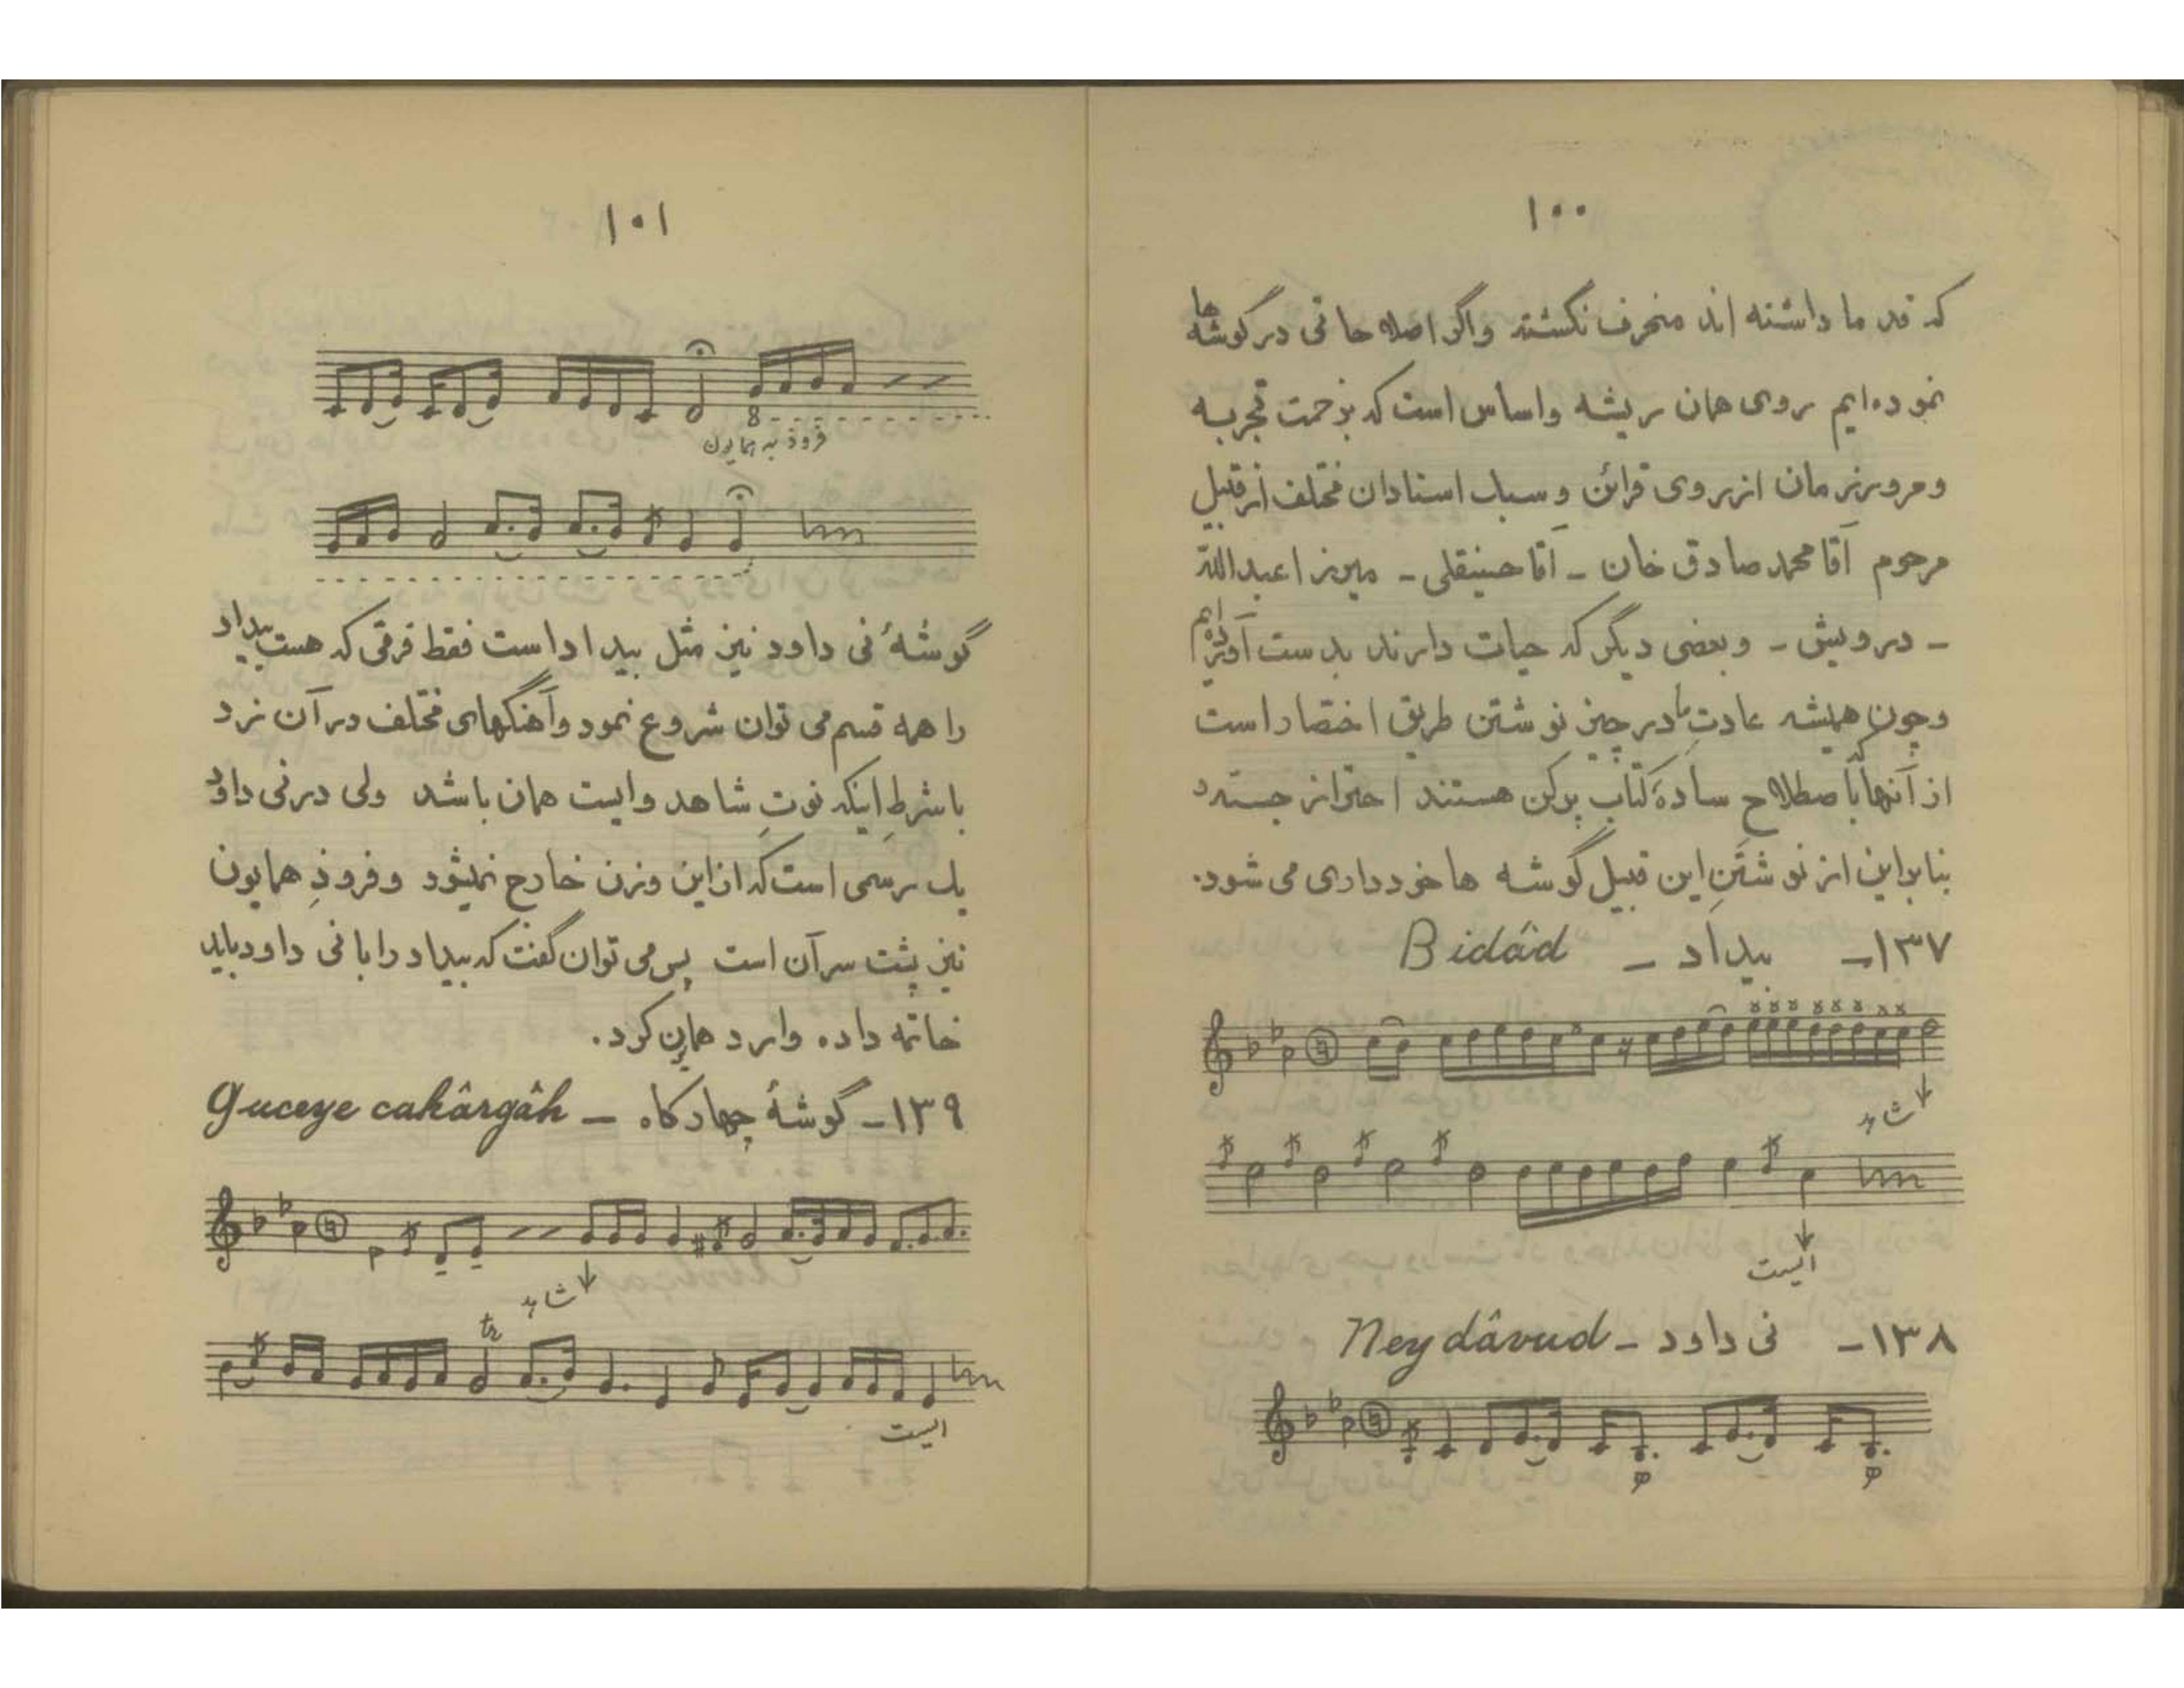 ۱۰۰
که قدما داشته اند منحرف نگشته واگر اصلاحاتی در گوشه ها
نموده‌ایم روی همان ریشه واساس است که بزحمت تجربه
ومرور زمان از روی قرائن و سبک استادان مختلف از قبیل
مرحوم آقا محمد صادق خان - آقا حسینقلی - میرزا عبدالله
- درویش - وبعضی دیگر که حیات دارند بدست آورده ایم
وچون همیشه عادت ما در چیز نوشتن طریق اختصار است
از آنها که باصطلاح سادهٔ کتاب پرکن هستند احتراز جسته و
بنابراین از نوشتَنِ این قبیل گوشه ها خودداری می شود.
۱۳۷- بیداد - Bidâd
شاهد
ایست
۱۳۸- نی داود - Neydâvud
۱۰۱
8
فرود به همایون
گوشهٔ نی داود نیز مثل بیداد است فقط فرقی که هست بیداد
را همه قسم می توان شروع نمود وآهنگهای مختلف در آن زد
باشرطِ اینکه نوتِ شاهد وایست همان باشد ولی در نی داود
یک رسمی است که از این وزن خارج نمیشود وفرودِ همایون
نیز پشت سر آن است پس می توان گفت که بیداد را با نی داود باید
خاتمه داده وارد همایون کرد.
۱۳۹- گوشهٔ چهارگاه - Guceye cahârgâh
شاهد
tr
ایست